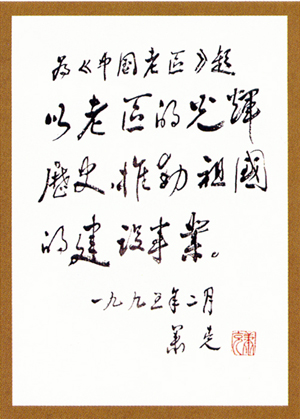 为《中国老区》题
以老区的光辉
歷史,推动祖國
的建设事業。
一九九五年二月
萧克